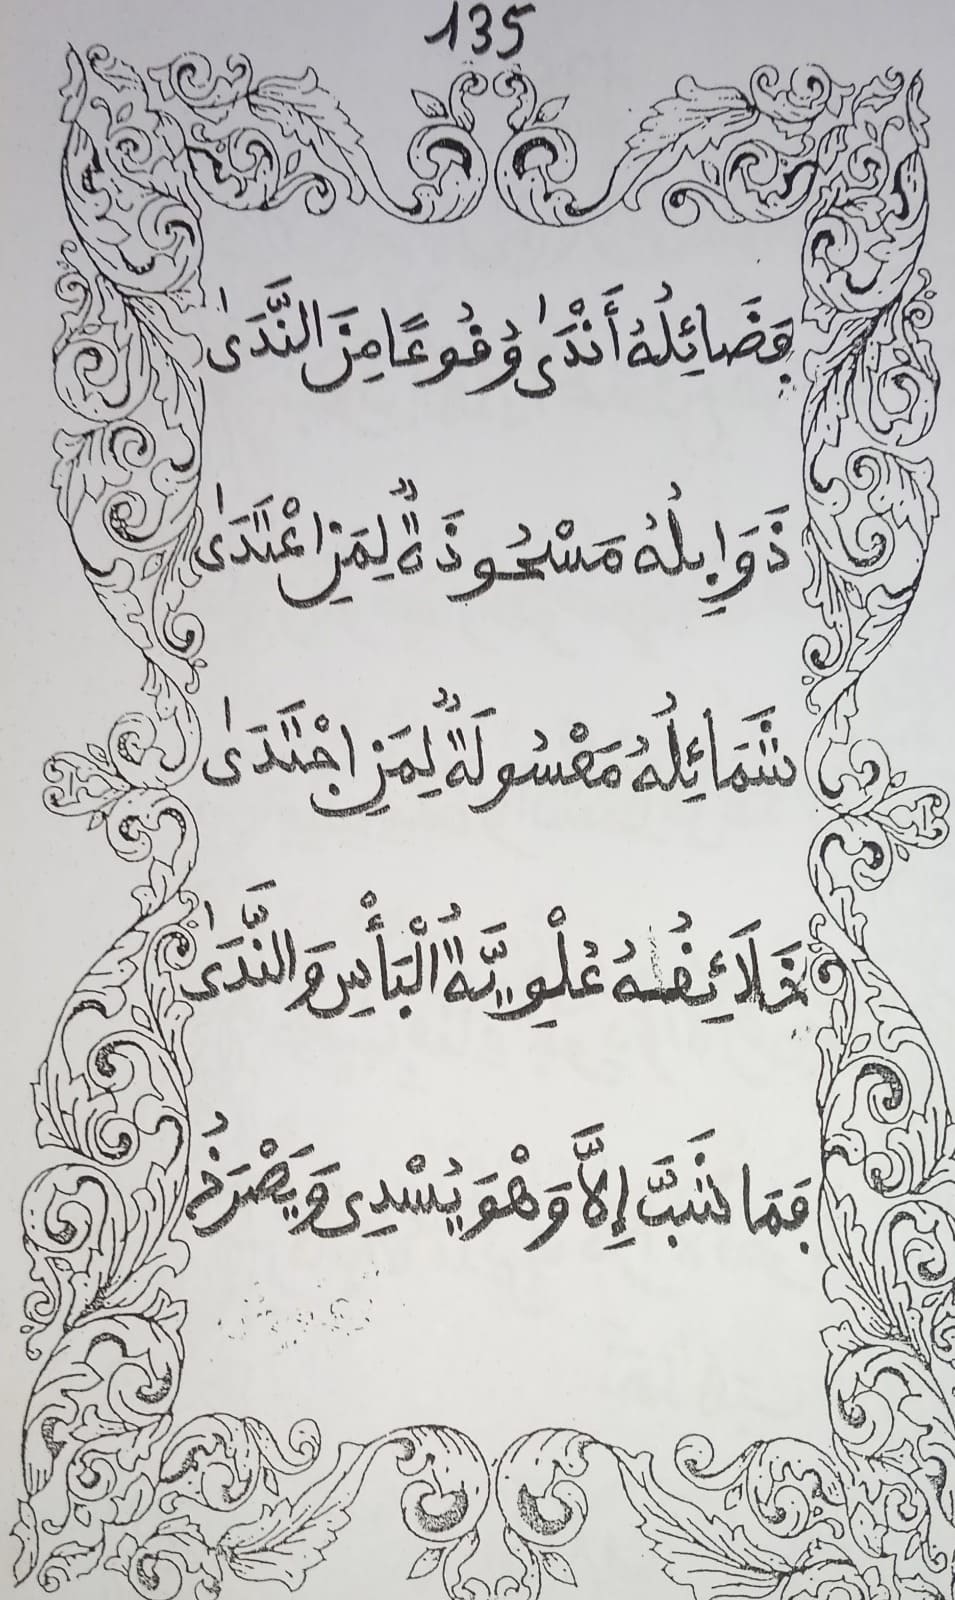 135
فَضَائِلُهُ أَنْدَىٰ وُقُوعًا مِنَ النَّدَىٰ
ذَوَابِلُهُ مَسْحُوذَةٌ لِمَنِ اعْتَدَىٰ
شَمَائِلُهُ مَعْسُولَةٌ لِمَنِ اجْتَدَىٰ
خَلَائِقُهُ عُلْوِيَّةُ الْبَأْسِ وَالنَّدَىٰ
فَمَا شَبَّ إِلَّا وَهْوَ يُسْدِي وَيَصْرَخُ